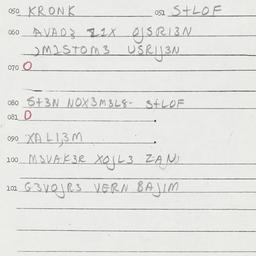 050 KRONK 051 S+LOF
060 AVAD3 21X OJSRI3N
)M2STOM3 USRIJ3N
070 O
080 S+3N NOX3M3L8- S+LOF
081 D
090 XALI,3M
100 M3VAK3R XOJL3 ZAN
102 G3VOJR3 VERN BAJIM